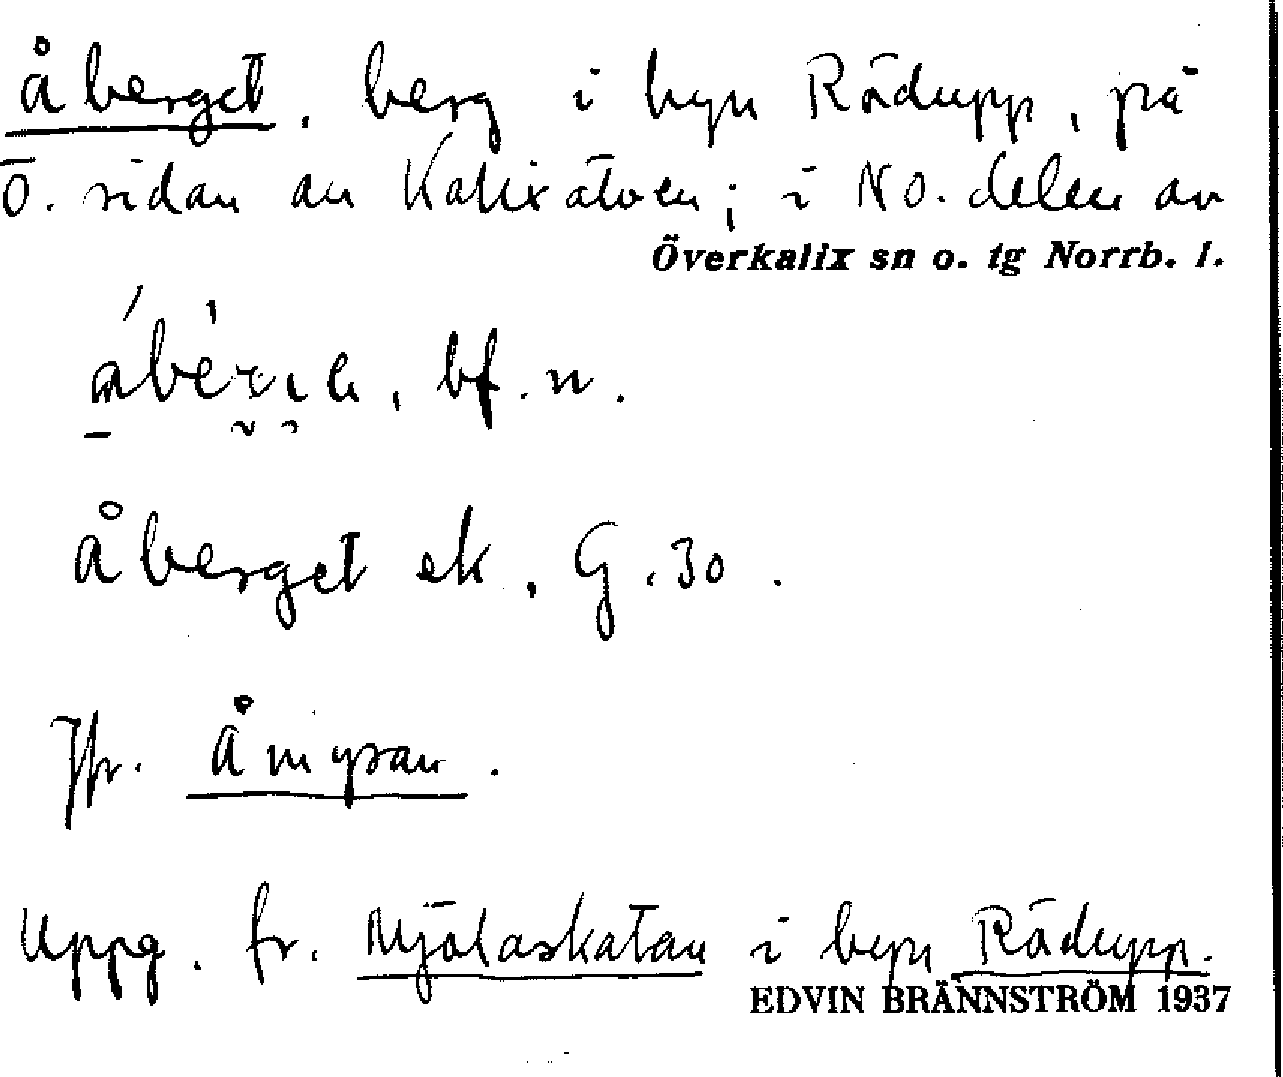 Åberget, berg i byn Rödupp, på
ö. sidan av Kalixälven; i NO. delen av
Överkalix sn o. tg Norrb. l.
bf. n.
Åberget ek, G. 30.
Jfr. Åmyran.
Uppg. fr. Mjölaskatan i byn Rödupp.
EDVIN BRÄNNSTRÖM 1937